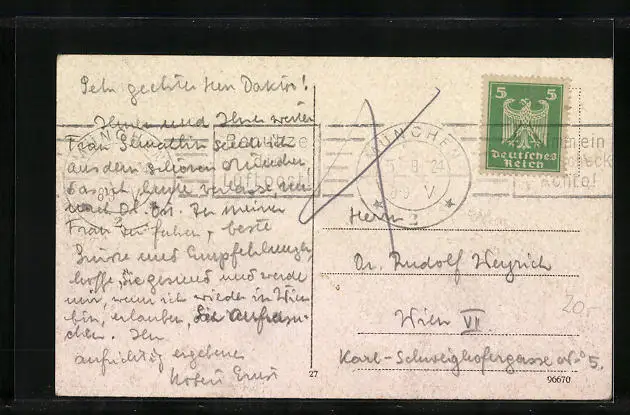 Sehr geehrter Herr Doktor!
Ihnen und Ihrer werten
Frau Gemahlin sende ich
aus dem schönen München,
das ich heute verlasse, um
nach zu meiner
Frau zu fahren, beste
Grüsse und Empfehlungen,
hoffe, Sie gesund und werde
mir, wenn ich wieder in Wien
bin, erlauben, Sie aufzusu-
chen. Ihr
aufrichtig ergebener
Robert Ernst
MÜNCHEN
Benütze
Luftpost
MÜNCHEN
24
V
2
5 5
Deutsches
Reich
ein
Konto!
Herrn
Dr. Rudolf Heyrich
Wien VI.
Karl-Schweighofergasse No 5.
20.-
27
96670